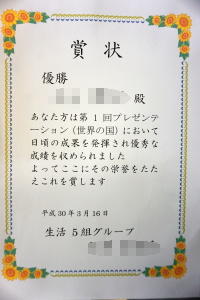 賞状
優勝
殿
あなた方は第1回プレゼンテ
ーション(世界の国)において
日頃の成果を発揮され優秀な
成績を収められました
よってここにその栄誉をたた
えこれを賞します
平成30年3月16日
生活 5組グループ